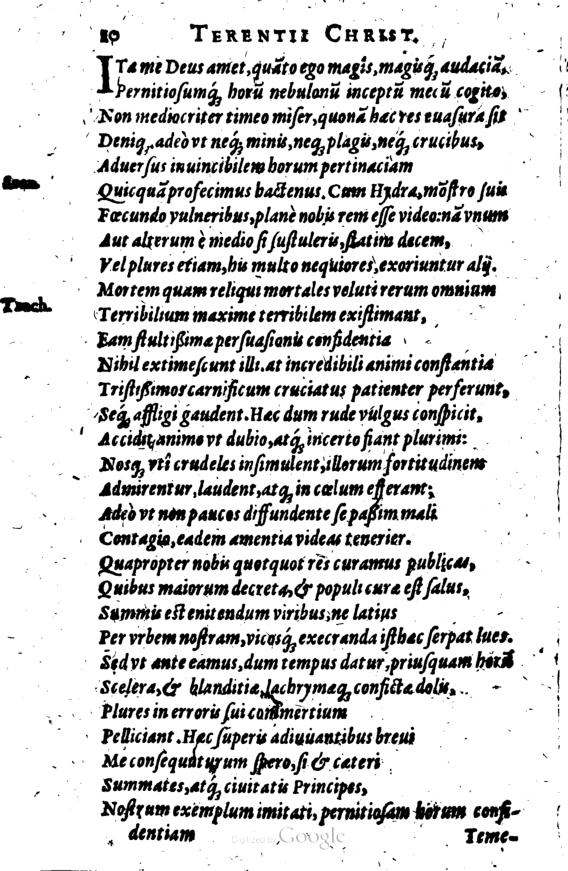 20 TERENTII CHRIST.
ITa me Deus amet, quãto ego magis, magisq́;, audaciã,
Pernitiosumq́; horũ nebulonũ inceptũ mecũ cogito,
Non mediocriter timeo miser, quonã hæc res euasura sit
Deniq;, adeò vt neq́; minis, neq; plagis, neq́; crucibus,
Aduersus inuincibilem horum pertinaciam
Quicquã profecimus hactenus. Cum Hydra, mõstro suis
Fœcundo vulneribus, planè nobis rem esse video: nã vnum
Aut alterum è medio si sustuleris, statim decem,
Vel plures etiam, his multo nequiores, exoriuntur alÿ.
Mortem quam reliqui mortales veluti rerum omnium
Trach.
Terribilium maxime terribilem existimant,
Eam stultißima persuasionis confidentia
Nihil extimescunt illi. at incredibili animi constantia
Tristißimos carnificum cruciatus patienter perferunt,
Seq́; affligi gaudent. Hæc dum rude vulgus conspicit,
Accidit, animo vt dubio, atq́; incerto fiant plurimi:
Nosq; vti crudeles insimulent, illorum fortitudinem
Admirentur, laudent, atq; in cœlum efferant;
Adeò vt non paucos diffundente se paßim mali
Contagio, eadem amentia videas tenerier.
Quapropter nobis quotquot res curamus publicas,
Quibus maiorum decreta, & populi cura est salus,
Summis est enitendum viribus, ne latius
Per vrbem nostram, vicosq́; execranda isthæc serpat lues.
Sed vt ante eamus, dum tempus datur, priusquam horũ
Scelera, & blanditiæ, lachrymæq; conficta dolis,
Plures in erroris sui commertium
Pelliciant. Hæc superis adiuuantibus breui
Me consequuturum spero, si & cæteri
Summates, atq́; ciuitatis Principes,
Nostrum exemplum imitati, pernitiosam horum confi-
dentiam Teme-
Digitized by Google